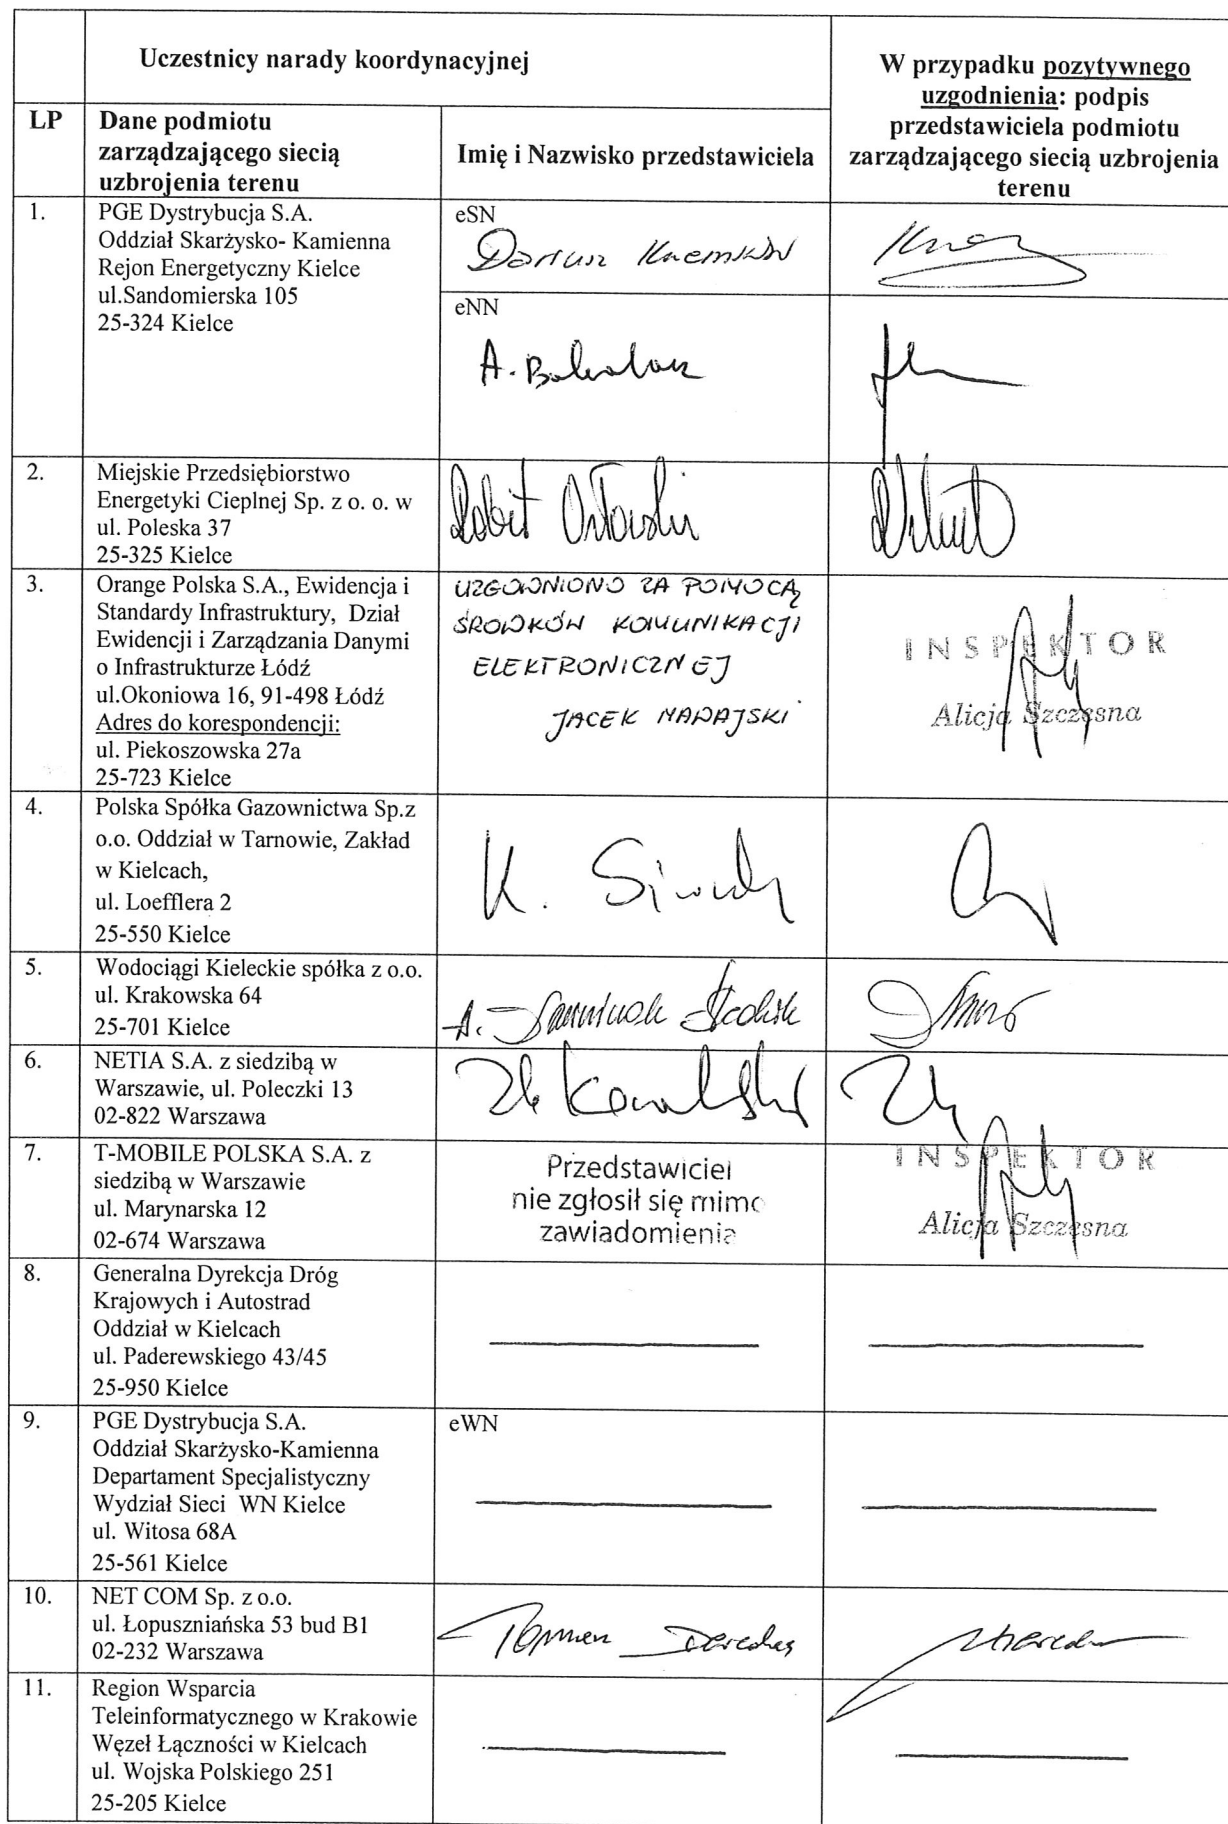 Uczestnicy narady koordynacyjnej
W przypadku pozytywnego
uzgodnienia: podpis
przedstawiciela podmiotu
zarządzającego siecią uzbrojenia
terenu
LP
Dane podmiotu
zarządzającego siecią
uzbrojenia terenu
Imię i Nazwisko przedstawiciela
1.
PGE Dystrybucja S.A.
Oddział Skarżysko- Kamienna
Rejon Energetyczny Kielce
ul.Sandomierska 105
25-324 Kielce
eSN
Dariusz
eNN
A.
2.
Miejskie Przedsiębiorstwo
Energetyki Cieplnej Sp. z o. o. w
ul. Poleska 37
25-325 Kielce
Robert Orłowski
3.
Orange Polska S.A., Ewidencja i
Standardy Infrastruktury, Dział
Ewidencji i Zarządzania Danymi
o Infrastrukturze Łódź
ul.Okoniowa 16, 91-498 Łódź
Adres do korespondencji:
ul. Piekoszowska 27a
25-723 Kielce
UZGODNIONO ZA POMOCĄ
ŚRODKÓW KOMUNIKACJI
ELEKTRONICZNEJ
JACEK
INSPEKTOR
Alicja Szczęsna
4.
Polska Spółka Gazownictwa Sp.z
o.o. Oddział w Tarnowie, Zakład
w Kielcach,
ul. Loefflera 2
25-550 Kielce
K.
5.
Wodociągi Kieleckie spółka z o.o.
ul. Krakowska 64
25-701 Kielce
A.
6.
NETIA S.A. z siedzibą w
Warszawie, ul. Poleczki 13
02-822 Warszawa
Kowalski
7.
T-MOBILE POLSKA S.A. z
siedzibą w Warszawie
ul. Marynarska 12
02-674 Warszawa
Przedstawiciel
nie zgłosił się mimo
zawiadomienia
INSPEKTOR
Alicja Szczęsna
8.
Generalna Dyrekcja Dróg
Krajowych i Autostrad
Oddział w Kielcach
ul. Paderewskiego 43/45
25-950 Kielce
9.
PGE Dystrybucja S.A.
Oddział Skarżysko-Kamienna
Departament Specjalistyczny
Wydział Sieci WN Kielce
ul. Witosa 68A
25-561 Kielce
eWN
10.
NET COM Sp. z o.o.
ul. Łopuszniańska 53 bud B1
02-232 Warszawa
11.
Region Wsparcia
Teleinformatycznego w Krakowie
Węzeł Łączności w Kielcach
ul. Wojska Polskiego 251
25-205 Kielce